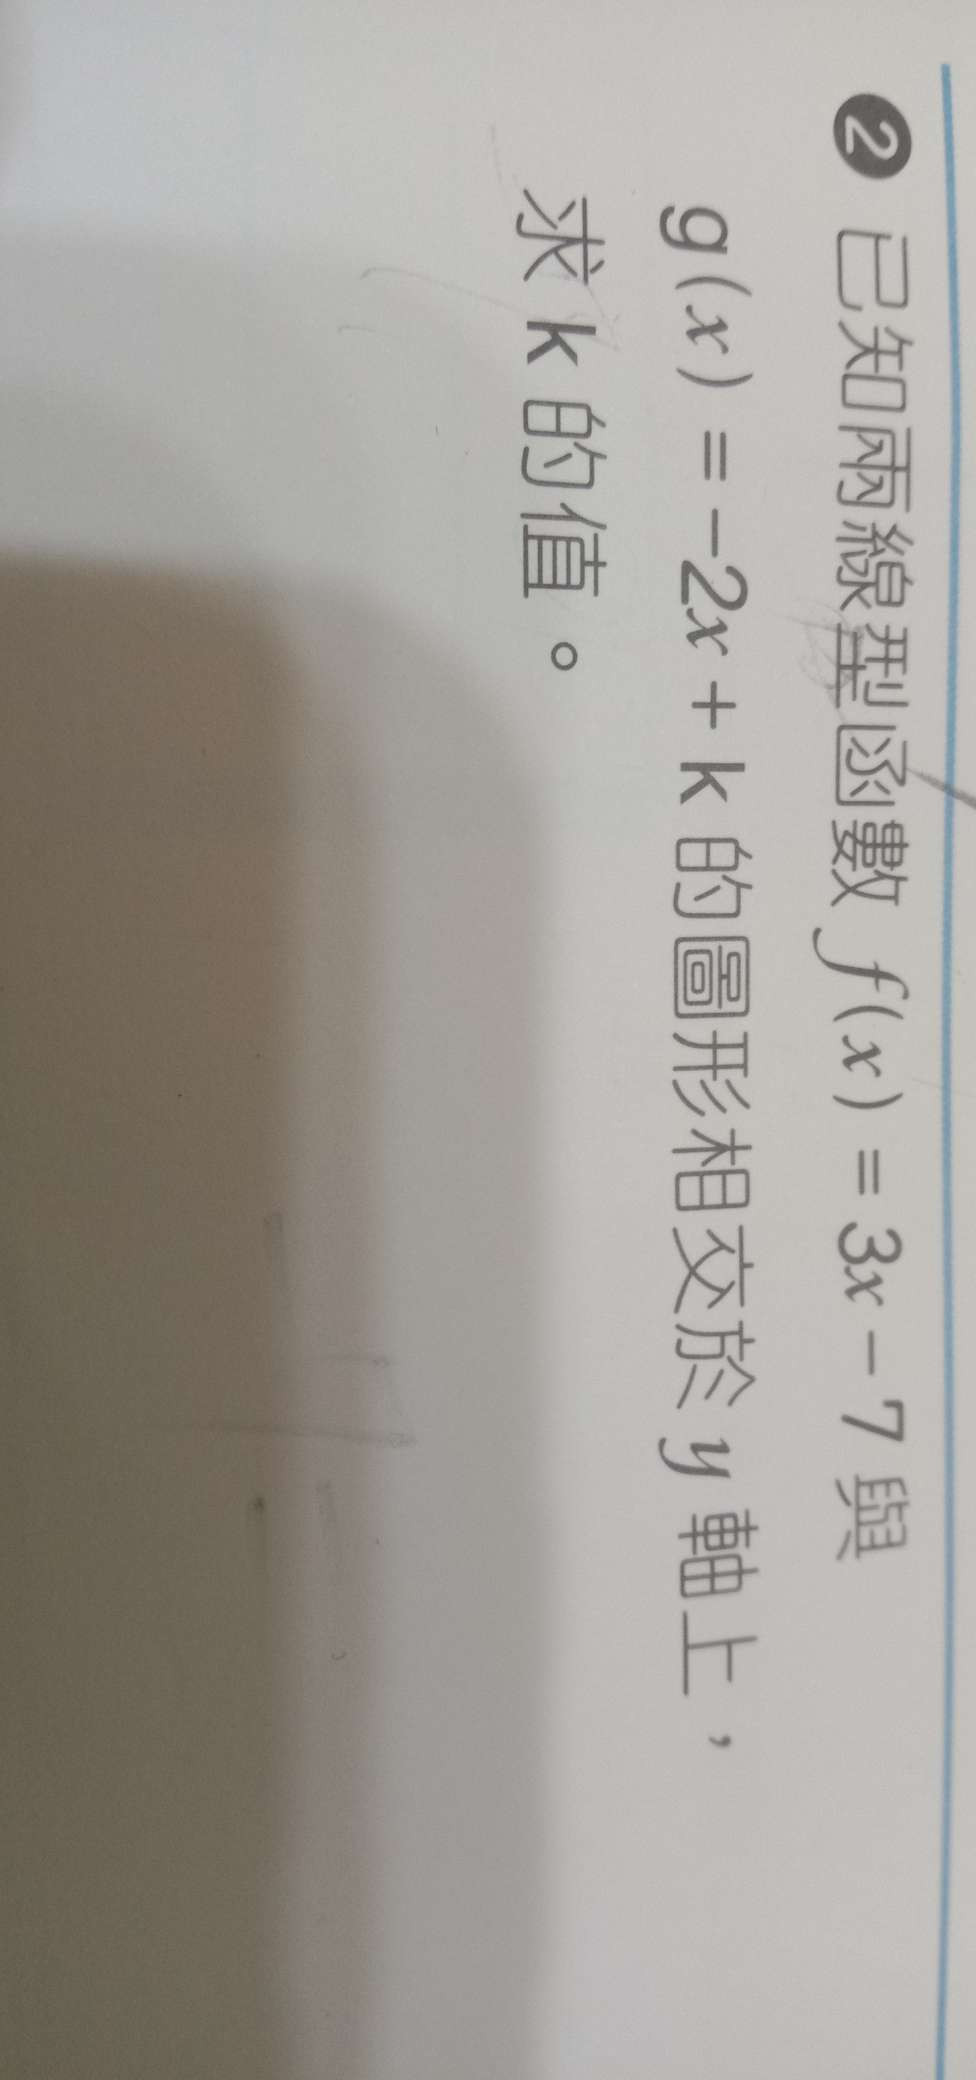 ❷ 已知兩線型函數 f(x) = 3x - 7 與
g(x) = -2x + k 的圖形相交於 y 軸上，
求 k 的值。